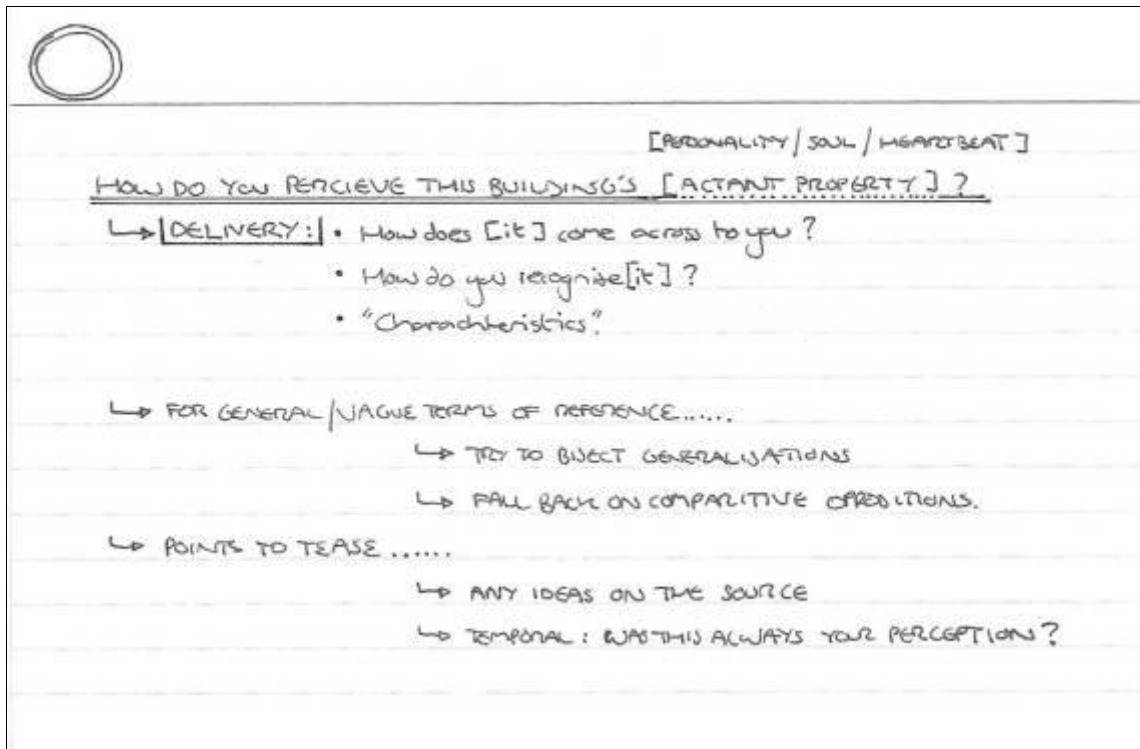 [PERSONALITY / SOUL / HEARTBEAT]
HOW DO YOU PERCIEVE THIS BUILDING'S [ACTANT PROPERTY]?
↳ DELIVERY: • How does [it] come across to you?
• How do you recognise [it]?
• "Charachteristics".
↳ FOR GENERAL / VAGUE TERMS OF REFERENCE......
↳ TRY TO BISECT GENERALISATIONS
↳ FALL BACK ON COMPARITIVE OPPOSITIONS.
↳ POINTS TO TEASE ......
↳ ANY IDEAS ON THE SOURCE
↳ TEMPORAL: WAS THIS ALWAYS YOUR PERCEPTION?